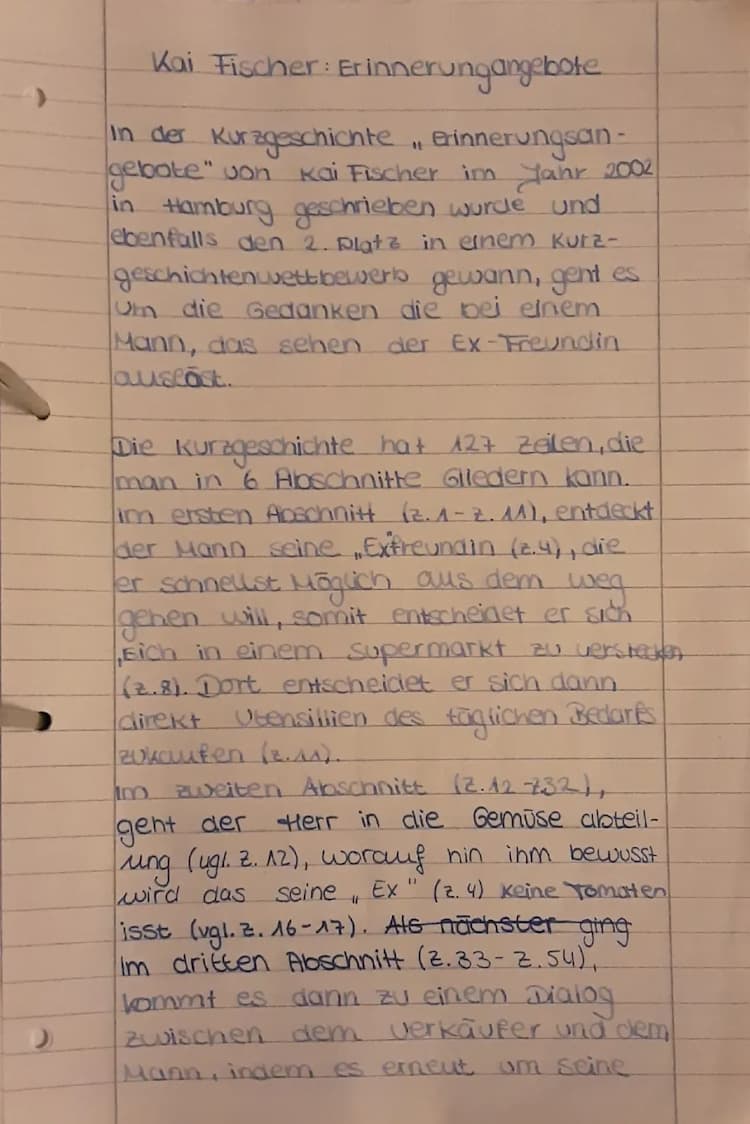 Kai Fischer: Erinnerungangebote
In der Kurzgeschichte „Erinnerungsan-
gebote" von Kai Fischer im Jahr 2002
in Hamburg geschrieben wurde und
ebenfalls den 2. Platz in einem Kurz-
geschichtenwettbewerb gewann, geht es
um die Gedanken die bei einem
Mann, das sehen der Ex-Freundin
auslöst.
Die Kurzgeschichte hat 127 Zeilen, die
man in 6 Abschnitte Gliedern kann.
im ersten Abschnitt (z.1-z.11), entdeckt
der Mann seine „Exfreundin (z.4), die
er schnellst Möglich aus dem weg
gehen will, somit entscheidet er sich
sich in einem Supermarkt zu verstecken
(z.8). Dort entscheidet er sich dann
direkt Utensillien des täglichen Bedarfs
zukaufen (z.11).
Im zweiten Abschnitt (z.12-z32),
geht der Herr in die Gemüse abteil-
ung (vgl. z. 12), worauf hin ihm bewusst
wird das seine „Ex" (z.4) keine Tomaten
isst (vgl. z. 16-17). Als nächster ging
Im dritten Abschnitt (z.33-z.54),
kommt es dann zu einem Dialog
zwischen dem verkäufer und dem
Mann, indem es erneut um seine